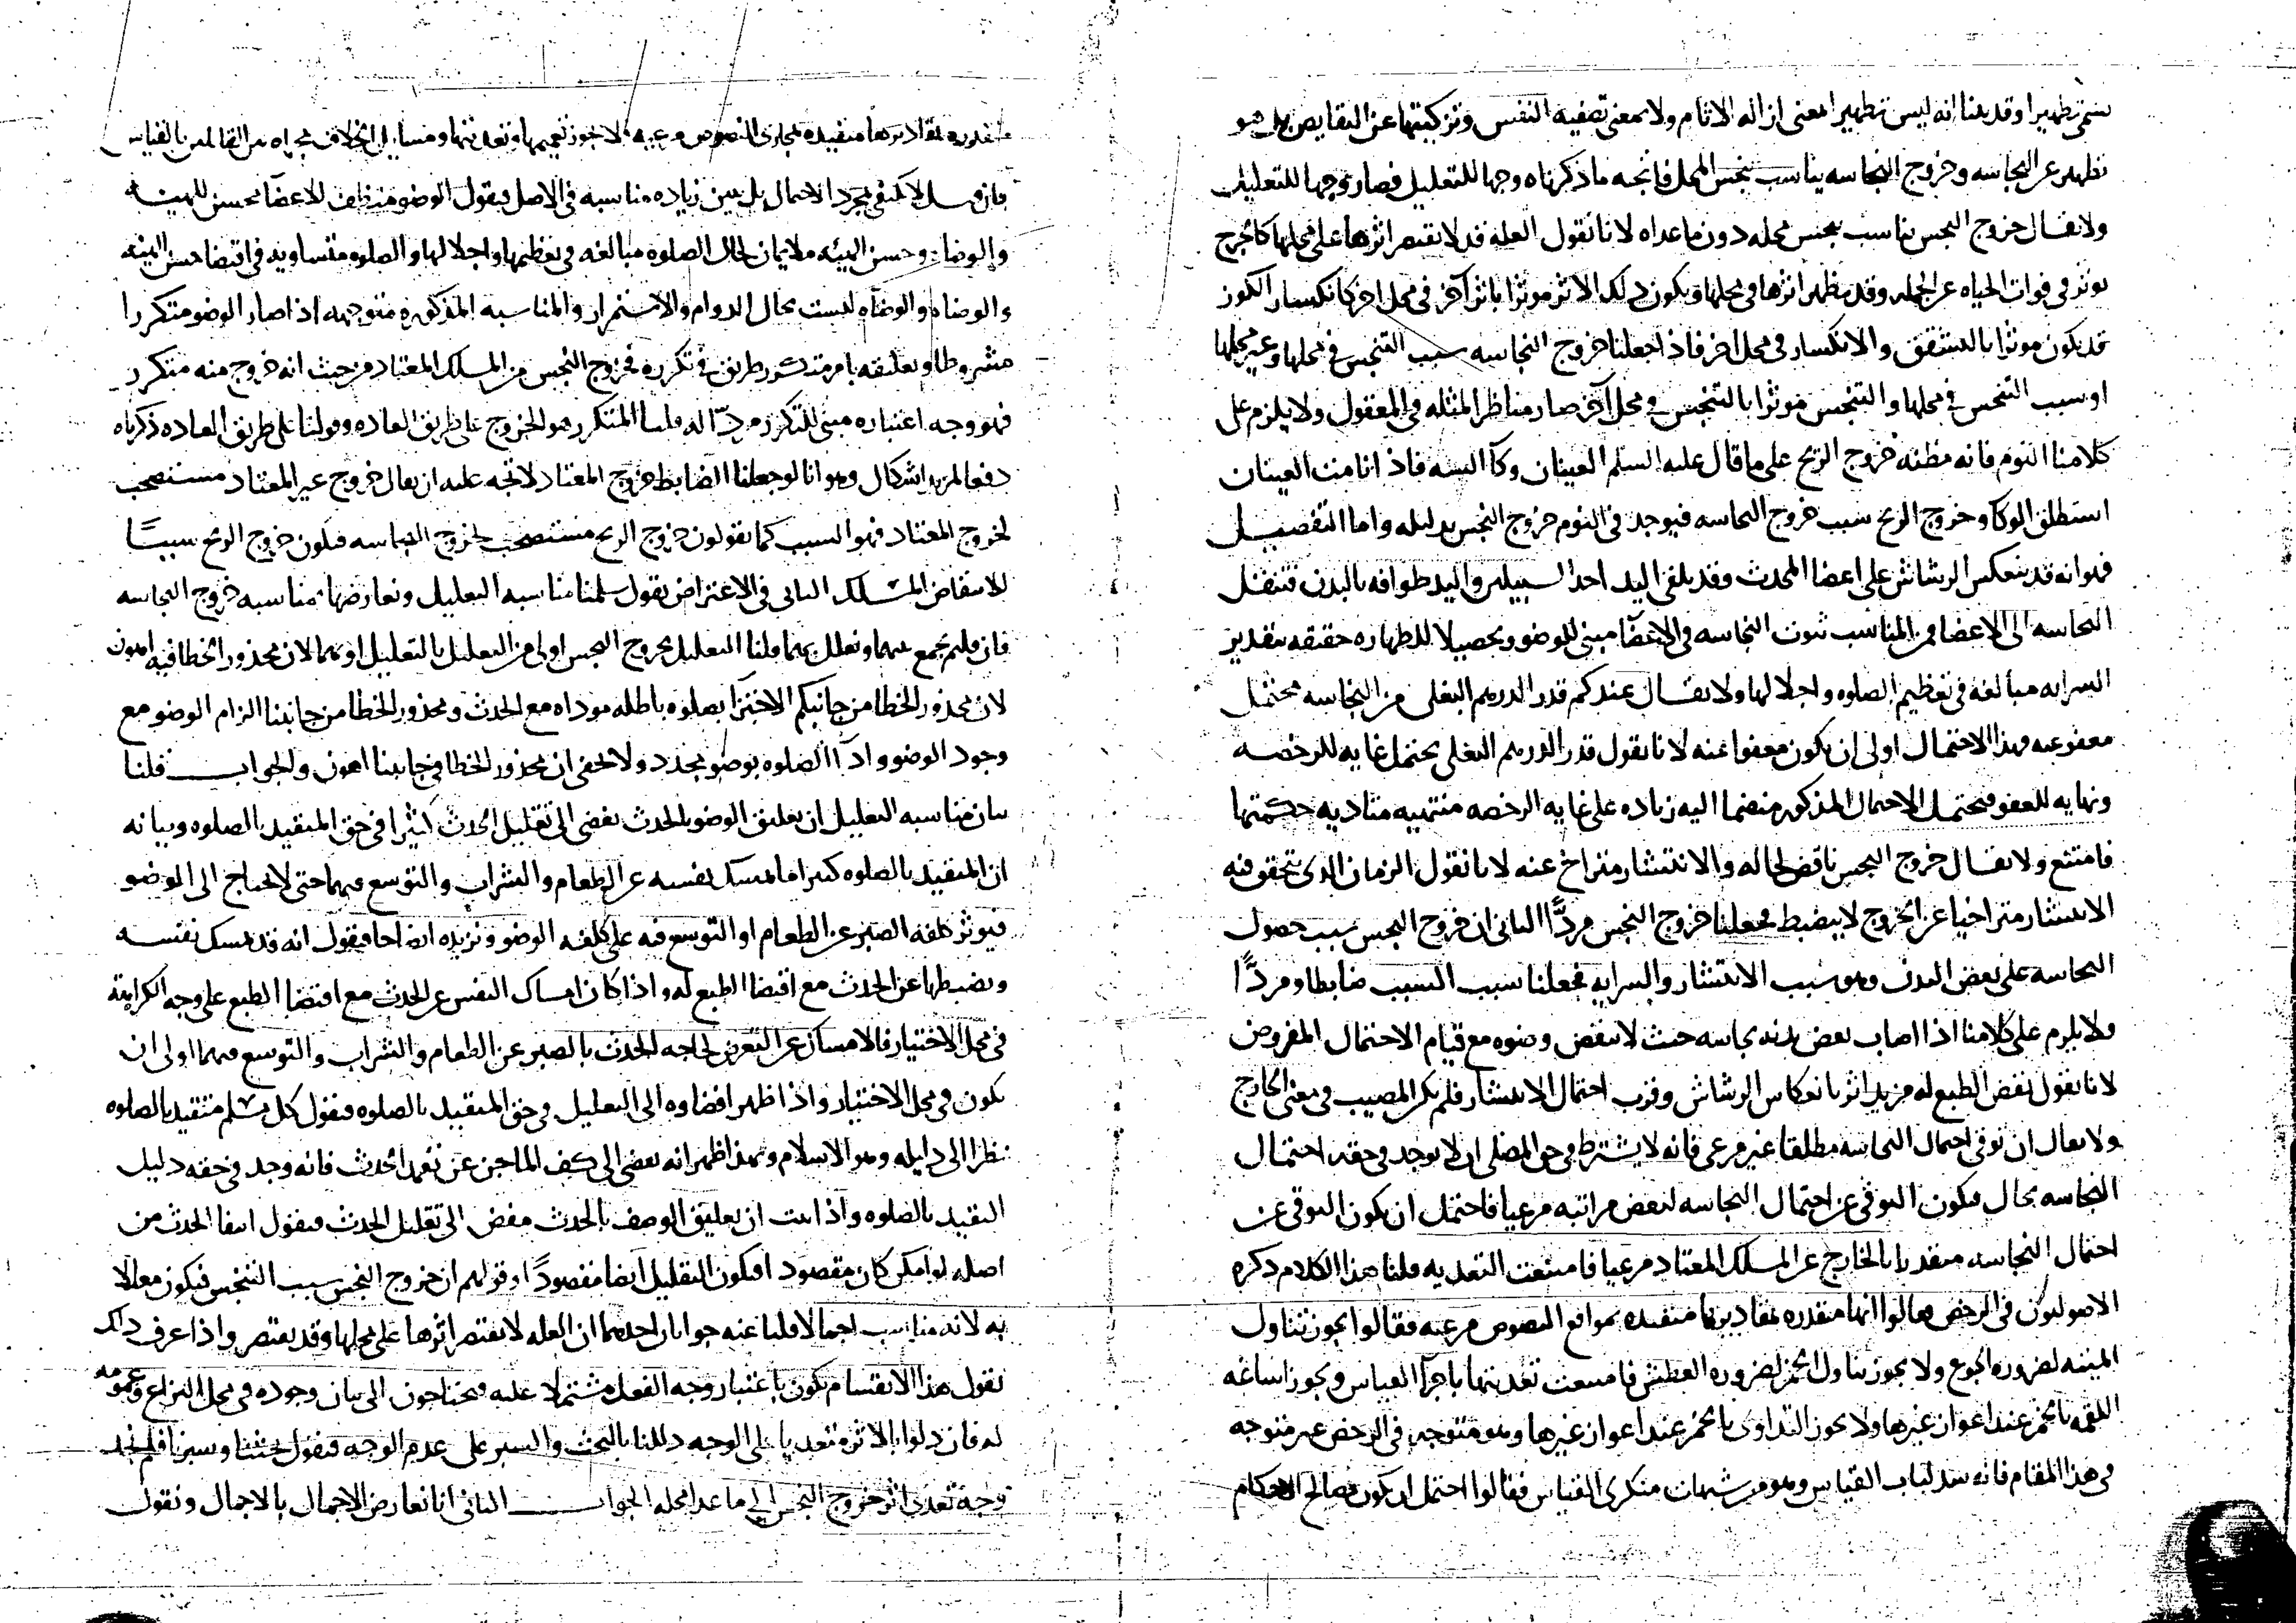 يسمى تطهيرا وقد بينا انه ليس تطهيرا بمعنى ازاله الاثام ولا بمعنى تصفيه النفس وتزكيتها عن النقايص بل هو
تطهير عن النجاسه وخروج النجاسه يناسب تنجس المحل فاتجه ما ذكرناه وجها للتعليل فصار وجها للتعليل
ولا يقال خروج النجس يناسب تنجس محله دون ما عداه لانا نقول العله قد لا يقتصر اثرها على محلها كالجرح
يوثر في فوات الحياه عن الجمله وقد يظهر اثرها في محلها ويكون ذلك الاثر موثرا باثر آخر في محل اخر كانكسار الكوز
قد يكون موثرا بالتشقق والانكسار في محل اخر فاذا جعلنا خروج النجاسه سبب التنجس في محلها وغير محلها
او سبب التنجس في محلها والتنجس موثرا بالتنجس في محل آخر صار مناظرا لمثله في المعقول ولا يلزم على
كلامنا النوم فانه مظنه خروج الريح على ما قال عليه السلم العينان وكآ السه فاذا نامت العينان
استطلق الوكآ وخروج الريح سبب خروج النجاسه فيوجد في النوم خروج النجس بدليله واما التفصيل
فهو انه قد ينعكس الرشاش على اعضا المحدث وقد يلقى اليد احد السبيلين واليد طوافه بالبدن فتنقل
النجاسه الى الاعضا فمن المناسب ثبوت النجاسه في الاعضآ مبنى للوضو وتحصيلا للطهاره حقيقه بتقدير
السرايه مبالغه في تعظيم الصلوه واجلالها ولا يقال عندكم قدر الدرهم البغلي من النجاسه محتمل
معفو عنه فهذا الاحتمال اولى ان يكون معفوا عنه لانا نقول قدر الدرهم البغلي يحتمل غايه للرخصه
ونهايه للعفو فيحتمل الاحتمال المذكور منضما اليه زياده على غايه الرخصه منتهيه متاديه حكمتها
فامتنع ولا يقال خروج النجس ناقض لحاله والانتشار متراخ عنه لانا نقول الزمان الذي يتحقق فيه
الانتشار متراخيا عن الخروج لا ينضبط فجعلنا خروج النجس مردًّا الثاني ان خروج النجس سبب حصول
النجاسه على بعض البدن وهو سبب الانتشار والسرايه فجعلنا سبب السبب ضابطا ومردًّا
ولا يلزم على كلامنا اذا اصاب بعض بدنه نجاسه حيث لا ينتقض وضوه مع قيام الاحتمال المفروض
لانا نقول نفض الطبع له مزيد اثر بانعكاس الرشاش وقرب احتمال الانتشار فلم يكن المصيب في معنى الخارج
ولا يقال ان توقي احتمال النجاسه مطلقا غير مرعي فانه لا يشترط في حق المصلى ان لا يوجد في حقه احتمال
النجاسه بحال فيكون التوقي عن احتمال النجاسه لبعض مراتبه مرعيا فاحتمل ان يكون التوقي عن
احتمال النجاسه متقدرا بالخارج عن المسلك المعتاد مرعيا فامتنعت التعديه قلنا هذا الكلام ذكره
الاصوليون في الرخص وقالوا انها متقدره بمقاديرها متقيده بمواقع النصوص مرعيه فقالوا يجوز تناول
الميته لضروره الجوع ولا يجوز تناول الخمر لضروره العطش فامتنعت تعديتها باجرآ القياس ويجوز اساغه
اللقمه بالخمر عند اعواز غيرها ولا يجوز التداوى بالخمر عند اعواز غيرها وهو متوجه في الرخص غير متوجه
في هذا المقام فانه سد لباب القياس وهو من شبهات منكرى القياس فقالوا احتمل ان يكون مصالح الاحكام
متقدره بمقاديرها متقيده بمجارى النصوص مرعيه لا يجوز تعميمها وتعديتها ومسايل الخلاف مجراه بين القائلين بالقياس
فان قيل لا يكتفى بمجرد الاحتمال بل نبين زياده مناسبه في الاصل فيقول الوضو منظف للاعضآ محسن للهيئه
والوضاه وحسن الهيئه ملايمان لحال الصلوه مبالغه في تعظيمها واجلالها والصلوه متساويه في اقتضا حسن الهيئه
والوضاه والوضآه ليست بحال الدوام والاستمرار والمناسبه المذكوره متوجهه اذا صار الوضو متكررا
مشروطا وتعليقه بامر متكرر طريق في تكرره فخروج النجس من المسلك المعتاد من حيث انه خروج منه متكرر
فهو وجه اعتباره مبنى للتكرر مردّا له قلنا المتكرر هو الخروج على طريق العاده وقولنا على طريق العاده ذكرناه
دفعا لمزيد اشكال وهو انا لو جعلنا الضابط خروج المعتاد لاتجه عليه ان يقال خروج غير المعتاد مستصحب
لخروج المعتاد فهو السبب كما تقولون خروج الريح مستصحب لخروج النجاسه فيكون خروج الريح سببًا
للانتقاض المسلك الثاني في الاعتراض نقول سلمنا مناسبه التعليل ونعارضها بمناسبه خروج النجاسه
فان قلتم نجمع بينهما ونعلل بهما قلنا التعليل بخروج النجس اولى من التعليل بالتقليل او بهما لان محذور الخطا فيه اهون
لان محذور الخطا من جانبكم الاجتزا بصلوه باطله موداه مع الحدث ومحذور الخطا من جانبنا الزام الوضو مع
وجود الوضو وادآ الصلوه بوضو مجدد ولا يخفى ان محذور الخطا في جانبنا اهون والجواب قلنا
بيان مناسبه التقليل ان تعليق الوضو بالحدث يفضى الى تقليل الحدث كثيرا في حق المتقيد بالصلوه وبيانه
ان المتقيد بالصلوه كثيرا ما يمسك نفسه عن الطعام والشراب والتوسع فيهما حتى لا يحتاج الى الوضو
فيوثر كلفه الصبر عن الطعام او التوسع فيه على كلفه الوضو ونزيده ايضاحا فيقول انه قد يمسك نفسه
ويضبطها عن الحدث مع اقتضا الطبع له واذا كان امساك النفس عن الحدث مع اقتضا الطبع على وجه الكراهة
في محل الاختيار فالامساك عن التعرض لحاجه الحدث بالصبر عن الطعام والشراب والتوسع فيهما اولى ان
يكون في محل الاختيار واذا ظهر افضاوه الى التقليل في حق المتقيد بالصلوه فيقول كل مسلم متقيد بالصلوه
نظرا الى دليله وهو الاسلام وبهذا ظهر انه يفضى الى كف الماجن عن تعمد الحدث فانه وجد في حقه دليل
التقيد بالصلوه واذا ثبت ان تعليق الوصف بالحدث مفض الى تقليل الحدث فيقول انتفا الحدث من
اصله لو امكن كان مقصودا فيكون التقليل ايضا مقصودًا وقولهم ان خروج النجس سبب التنجس فيكون معللا
به لانه مناسب اجمالا قلنا عنه جوابان احدهما ان العله لا يقتصر اثرها على محلها وقد يقتصر واذا عرف ذلك
نقول هذا الانقسام يكون باعتبار وجه الفعل مشتملا عليه فيحتاجون الى بيان وجوده في محل النزاع وعمومه
له فان دلوا بالاثر متعديا على الوجه دللنا بالبحث والسبر على عدم الوجه فيقول بحثنا وسبرنا فلم نجد
وجه تعدى اثر خروج النجس الى ما عدا محله الجواب الثاني انا نعارض الاجمال بالاجمال ونقول